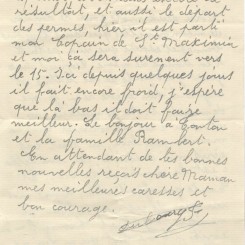 résultat, et aussi le départ
des permis, hier il est parti
mon Copain de St Maximin
et moi ça sera surement vers
le 15. Ici depuis quelques jours
il fait encore froid, j'espère
que là bas il doit faire
meilleur. Le bonjour à Tonton
et la famille Rambert.
En attendant de tes bonnes
nouvelles reçois chère Maman
mes meilleures caresses et
bon courage.